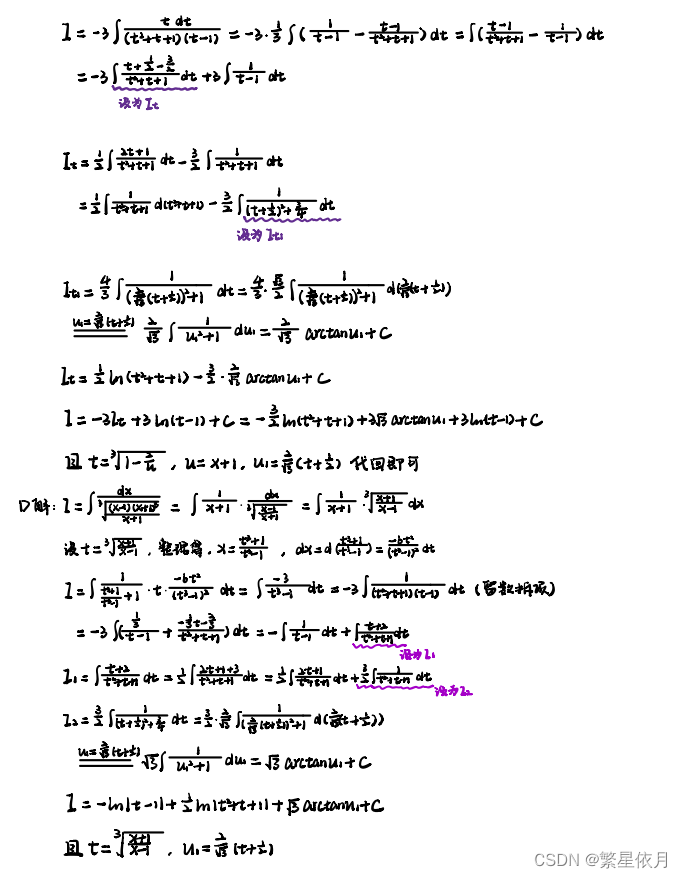 I = -3∫ t dt/((t²+t+1)(t-1)) = -3·1/3 ∫(1/(t-1) - (t-1)/(t²+t+1))dt = ∫((t-1)/(t²+t+1) - 1/(t-1))dt
= -3∫ (t+1/2-3/2)/(t²+t+1) dt + 3∫ 1/(t-1) dt
设为 It
It = 1/2∫ (2t+1)/(t²+t+1) dt - 3/2 ∫ 1/(t²+t+1) dt
= 1/2∫ 1/(t²+t+1) d(t²+t+1) - 3/2∫ 1/((t+1/2)²+3/4) dt
设为 It₁
It₁ = 4/3∫ 1/((2/√3(t+1/2))²+1) dt = 4/3·√3/2 ∫ 1/((2/√3(t+1/2))²+1) d(2/√3(t+1/2))
u₁=2/√3(t+1/2) 2/√3 ∫ 1/(u₁²+1) du₁ = 2/√3 arctanu₁+C
It = 1/2 ln(t²+t+1) - 3/2·2/√3 arctanu₁+C
I = -3It+3ln(t-1)+C = -3/2 ln(t²+t+1)+3√3 arctanu₁+3ln(t-1)+C
且 t=³√(1-2/u), u=x+1, u₁=2/√3(t+1/2) 代回即可
D解: I = ∫ dx/(³√((x-1)(x+1)²)/(x+1)) = ∫ 1/(x+1) · dx/³√((x-1)/(x+1)) = ∫ 1/(x+1) · ³√((x+1)/(x-1)) dx
设t=³√((x+1)/(x-1)), 整理得, x=(t³+1)/(t³-1), dx=d((t³+1)/(t³-1))=-6t²/(t³-1)² dt
I = ∫ 1/((t³+1)/(t³-1)+1) · t · -6t²/(t³-1)² dt = ∫ -3/(t³-1) dt = -3∫ 1/((t²+t+1)(t-1)) dt (留数拆项)
= -3∫((1/3)/(t-1) + (-1/3t-2/3)/(t²+t+1))dt = -∫ 1/(t-1) dt + ∫ (t+2)/(t²+t+1) dt
设为 I₁
I₁ = ∫ (t+2)/(t²+t+1) dt = 1/2∫ (2t+1+3)/(t²+t+1) dt = 1/2∫ (2t+1)/(t²+t+1) dt + 3/2∫ 1/(t²+t+1) dt
设为 I₂
I₂ = 3/2∫ 1/((t+1/2)²+3/4) dt = 3/2·2/√3 ∫ 1/((2/√3(t+1/2))²+1) d(2/√3(t+1/2))
u₁=2/√3(t+1/2) √3∫ 1/(u₁²+1) du₁ = √3 arctanu₁+C
I = -ln|t-1|+1/2 ln|t²+t+1|+√3 arctanu₁+C
且 t=³√((x+1)/(x-1)), u₁=2/√3(t+1/2)
CSDN @繁星依月